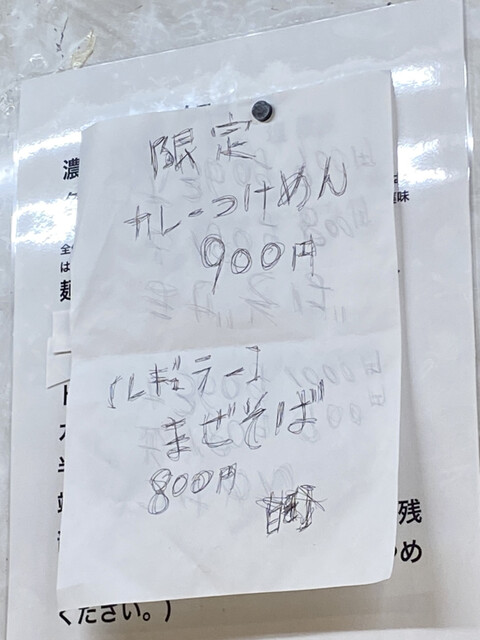 限定
カレーつけめん
900円
「レギュラー」
まぜそば
800円
濃
味
全
は
麺
半
残
め
ください。)